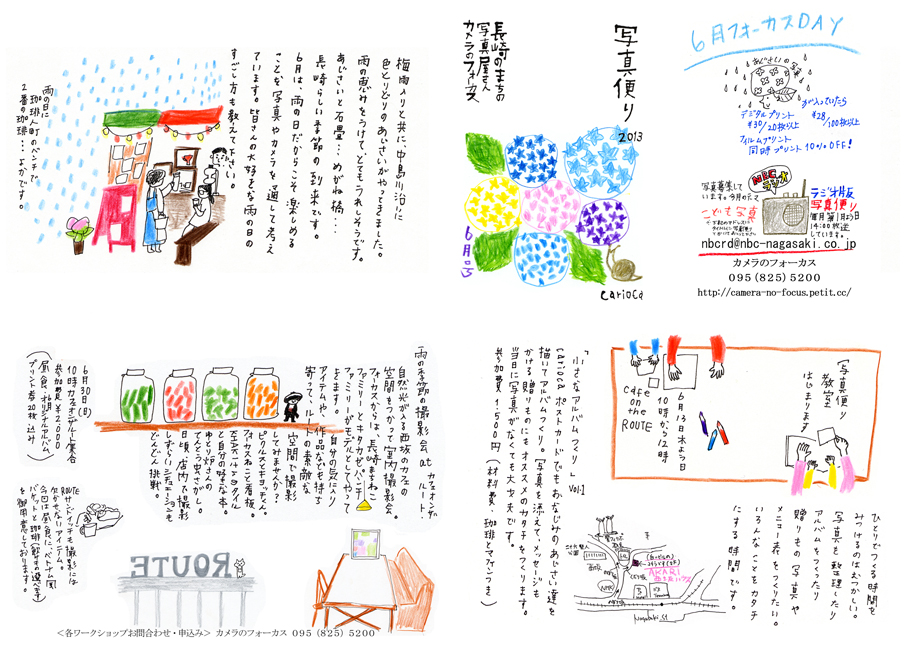 梅雨入りと共に、中島川沿いに
色とりどりのあじさいがやってきました。
雨の恵みをうけて、とてもうれしそうです。
あじさいと石畳…めがね橋…
長崎らしい季節の到来です。
6月は、雨の日だからこそ楽しめる
ことを写真やカメラを通して考え
ています。皆さんの大好きな雨の日の
すごし方も教えて下さい。
雨の日に
珈琲人町のベンチで
2番の珈琲…よかです。
写真便り
2013
長崎のまちの
写真屋さん
カメラのフォーカス
6月号
carioca
6月フォーカスDAY
あじさいの写真
が入っていたら
デジタルプリント
¥30/20枚以上
¥28/100枚以上
フィルムプリント
同時プリント 10% OFF!
NBCラジオ
ラジオ版
写真便り
毎月第1月よう日
14:00放送
しています。
写真募集して
います。今月のテーマ
こども写真
nbcrd@nbc-nagasaki.co.jp
カメラのフォーカス
095(825)5200
http://camera-no-focus.petit.cc/
雨の季節の撮影会 at カフェオンザルート
自然光がうる西坂のカフェの
空間をつかって室内撮影会。
フォーカスからは、長崎まちねこ
ファミリーとキタカゼパンチ
ファミリーがモデルとしてやって
きます。自分の気に入り
アイテムや、作品などを持ち
寄って、ルートの素敵な
空間で撮影
してみませんか??
ピクルスとキョッチャン。
フォカスねこと看板。
自分の好みな本。
日頃、店内で撮影
しずらいシチュエーションも
どんどん挑戦。
6月30日(日)
10時カフェオンザルート集合
参加費 ¥2000
(昼食、オリジナルアルバム
プリント券20枚込み)
ROUTE
サンドイッチも撮影には
欠かせないアイテム。
今回は昼食に、ベトナム風
バケットと珈琲(飲みもの選べます)
を御用意しております。
ROUTE
<各ワークショップお問合わせ・申込み> カメラのフォーカス 095(825)5200
「写真便り
教室」
はじまります
6月13日木よう日
10時から12時
cafe
on the
ROUTE
ひとりでつくる時間を
みつけるのはむつかしい。
写真を整理したり
アルバムをつくったり
贈りもの、写真や
メニュー表をつくりたい。
いろんなことをカタチ
にする時間です。
「小さなアルバムつくり」 Vol.1
cariocaポストカードでもおなじみのあじさい達を
描いてアルバムつくり。写真を添えて、メッセージも
かける贈りものにもオススメのカタチをつくります。
当日に写真がなくても大丈夫です。
参加費 1500円 (材料費、珈琲とマフィンつき)
AKARI
西坂ハウス
西坂
NHK
Nagasaki St